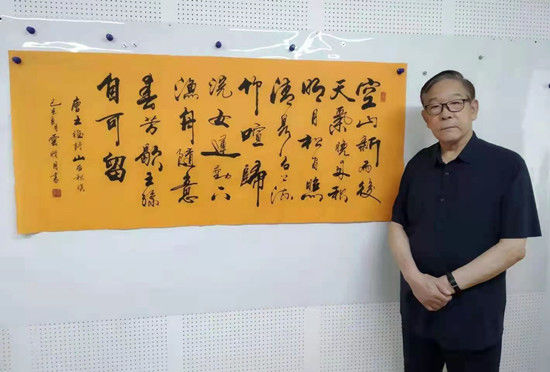 空山新雨後
天氣晚來秋
明月松間照
清泉石上流
竹喧歸
浣女蓮動下
漁舟隨意
春芳歇王孫
自可留
唐王維詩山居秋暝
己亥